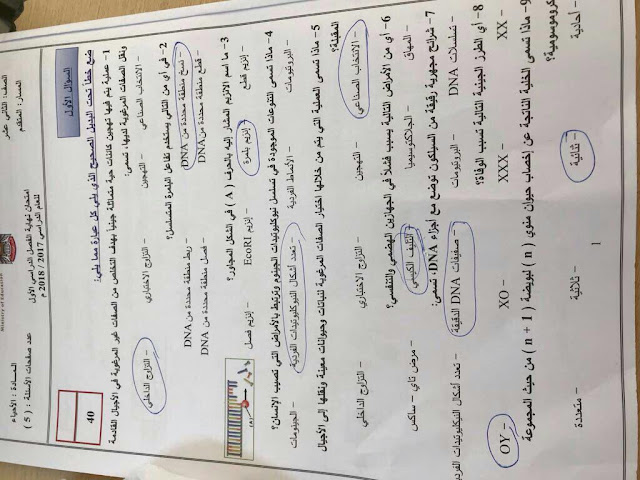 Ministry of Education
المسار : المتقدم
الصف : الثاني عشر
امتحان نهاية الفصل الدراسي الأول
للعام الدراسي 2017 / 2018 م
المادة : الأحياء
عدد صفحات الأسئلة : ( 5 )
السؤال الأول
40
ضع خطاً تحت البديل الصحيح الذي يلي كل عبارة مما يلي:
1- عملية يتم فيها تهجين كائنات حية متماثلة جينياً بهدف التخلص من الصفات غير المرغوبة في الأجيال القادمة
ونقل الصفات المرغوبة لديها، تسمى:
- الانتخاب الصناعي - التهجين - التزاوج الاختباري - التزاوج الداخلي
2- في أي من التالي يستخدم تفاعل البلمرة المتسلسل؟
- نسخ منطقة محددة من DNA - ربط منطقة محددة من DNA
- قطع منطقة محددة من DNA - فصل منطقة محددة من DNA
3- ما اسم الإنزيم المشار إليه بالحرف ( A ) في الشكل المجاور؟
(A)
- إنزيم قطع - إنزيم بلمرة - إنزيم EcoRI - إنزيم فصل
4- ماذا تسمى التنوعات الموجودة في تسلسل نيوكليوتيدات الجينوم ترتبط بالأمراض التي تصيب الإنسان؟
- البروتيومات - الأنماط الفردية - تعدد أشكال النيوكليوتيدات الفردية - الجينومات
5- ماذا تسمى العملية التي يتم من خلالها اختيار الصفات المرغوبة لنباتات وحيوانات معينة ونقلها إلى الأجيال
المقبلة؟
- الانتخاب الصناعي - التهجين - التزاوج الاختباري - التزاوج الداخلي
6- أي من الأمراض التالية يسبب فشلاً في الجهازين الهضمي والتنفسي؟
- المهاق - الجلاكتوسيميا - التليف الكيسي - مرض تاي - ساكس
7- شرائح مجهرية رقيقة من السيليكون توضع مع أجزاء DNA، تسمى:
- تسلسلات DNA - البروتيومات - مصفوفات DNA الدقيقة - تعدد أشكال النيوكليوتيدات الفردية
8- أي الطرز الجينية التالية تسبب الوفاة؟
- XX - XXX - XO - OY
9- ماذا تسمى الخلية الناتجة عن إخصاب حيوان منوي ( n ) لبويضة ( n + 1 ) من حيث المجموعة
الكروموسومية؟
- أحادية - ثنائية - ثلاثية - متعددة
1